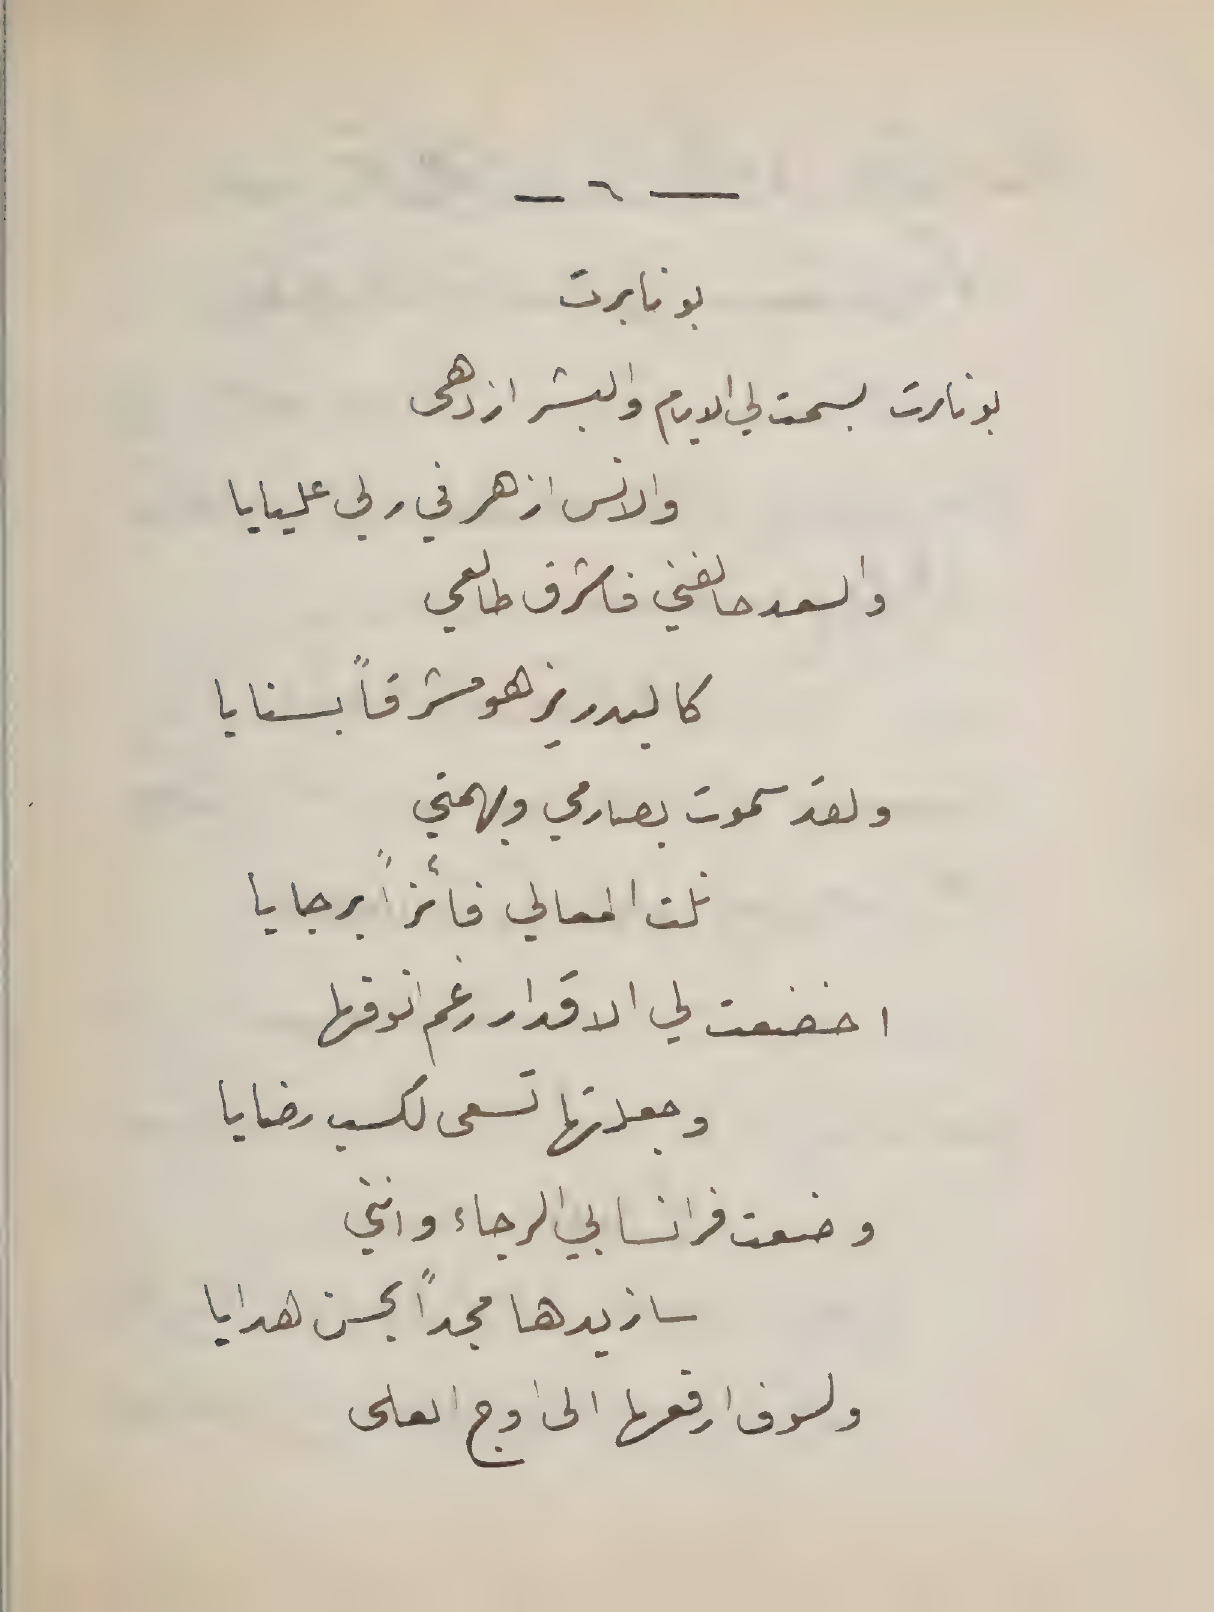 — ٦ —
بونابرت
بونابرت بسمت لي الايام والبشر ازدهى
والانس ازهر في ربي عليايا
والسعد حالفني فاشرق طالعي
كالبدر يزهو مشرقاً بسنايا
ولقد سموت بصارمي وبهمتي
نلت المعالي فائزاً برجايا
اخضعت لي الاقدار رغم انوفها
وجعلتها تسعى لكسب رضايا
وضعت فرانسا بي الرجاء وانني
سازيدها مجداً بحسن هدايا
ولسوف ارفعها الى اوج العلى